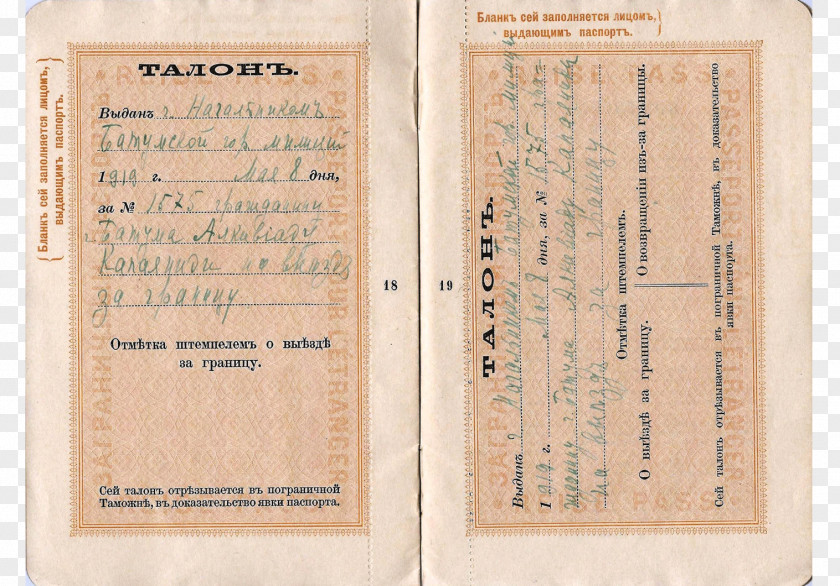 {Бланкъ сей заполняется лицомъ,}
{выдающимъ паспортъ.}
ТАЛОНЪ.
Выданъ г. Начальникомъ
Батумской гор. милиціи
1919 г. Мая 8 дня,
за № 1575 гражданину
г. Батума Алкивіаду
на выѣздъ
за границу
Отмѣтка штемпелемъ о выѣздѣ
за границу.
Сей талонъ отрѣзывается въ пограничной
Таможнѣ, въ доказательство явки паспорта.
18
19
Бланкъ сей заполняется лицомъ,}
выдающимъ паспортъ.}
ТАЛОНЪ.
Выданъ Начальникомъ Батумской гор. милиціи
1919 г. Мая 8 дня, за № 1575 гра-
жданину г. Батума Алкивіаду
на выѣздъ за границу
Отмѣтка штемпелемъ.
О выѣздѣ за границу. О возвращеніи изъ-за границы.
Сей талонъ отрѣзывается въ пограничной Таможнѣ, въ доказательство
явки паспорта.